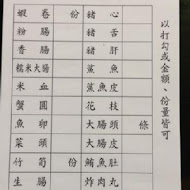 以打勾或金額、份量皆可
蝦卷 份 豬心
粉腸 豬舌
香腸 豬肝
糯米大腸 鯊魚
米血 鯊魚皮
蟹圓 花枝
魚卵 大腸頭 條
菜頭 大腸皮
竹筍 份 鮪魚肚
生腸 炸肉丸